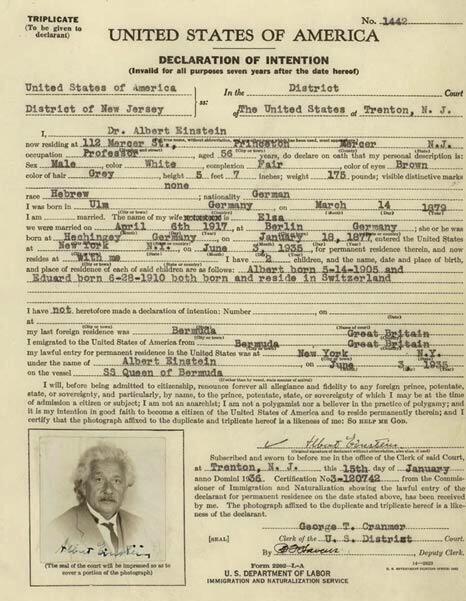 TRIPLICATE
(To be given to
declarant)
No. 1442
UNITED STATES OF AMERICA
DECLARATION OF INTENTION
(Invalid for all purposes seven years after the date hereof)
United States of America
In the District Court
District of New Jersey
ss:
of The United States of Trenton, N. J.
I, Dr. Albert Einstein
now residing at 112 Mercer St., Princeton Mercer N.J.
occupation Professor, aged 56 years, do declare on oath that my personal description is:
Sex Male, color White, complexion Fair, color of eyes Brown
color of hair Grey, height 5 feet 7 inches; weight 175 pounds; visible distinctive marks
none
race Hebrew; nationality German
I was born in Ulm Germany, on March 14 1879
I am married. The name of my wife is Elsa
we were married on April 6th 1917, at Berlin Germany; she or he was
born at Hechingey Germany, on January 18, 1877, entered the United States
at New York N.Y., on June 3, 1935, for permanent residence therein, and now
resides at With me. I have 2 children, and the name, date and place of birth,
and place of residence of each of said children are as follows: Albert born 5-14-1905 and
Eduard born 6-28-1910 both born and reside in Switzerland
I have not heretofore made a declaration of intention: Number, on
at
my last foreign residence was Bermuda Great Britain
I emigrated to the United States of America from Bermuda, Great Britain
my lawful entry for permanent residence in the United States was at New York, N.Y.
under the name of Albert Einstein, on June 3, 1935
on the vessel SS Queen of Bermuda
I will, before being admitted to citizenship, renounce forever all allegiance and fidelity to any foreign prince, potentate,
state, or sovereignty, and particularly, by name, to the prince, potentate, state, or sovereignty of which I may be at the time
of admission a citizen or subject; I am not an anarchist; I am not a polygamist nor a believer in the practice of polygamy; and
it is my intention in good faith to become a citizen of the United States of America and to reside permanently therein; and I
certify that the photograph affixed to the duplicate and triplicate hereof is a likeness of me: SO HELP ME GOD.
Albert Einstein
Subscribed and sworn to before me in the office of the Clerk of said Court,
at Trenton, N. J. this 15th day of January
anno Domini 1936. Certification No. 3-120742 from the Commis-
sioner of Immigration and Naturalization showing the lawful entry of the
declarant for permanent residence on the date stated above, has been received
by me. The photograph affixed to the duplicate and triplicate hereof is a like-
ness of the declarant.
George T. Cranmer
[SEAL] Clerk of the U. S. District Court.
By, Deputy Clerk.
Albert Einstein
(The seal of the court will be impressed so as to
cover a portion of the photograph)
Form 2202-L-A
U. S. DEPARTMENT OF LABOR
IMMIGRATION AND NATURALIZATION SERVICE
14-2623